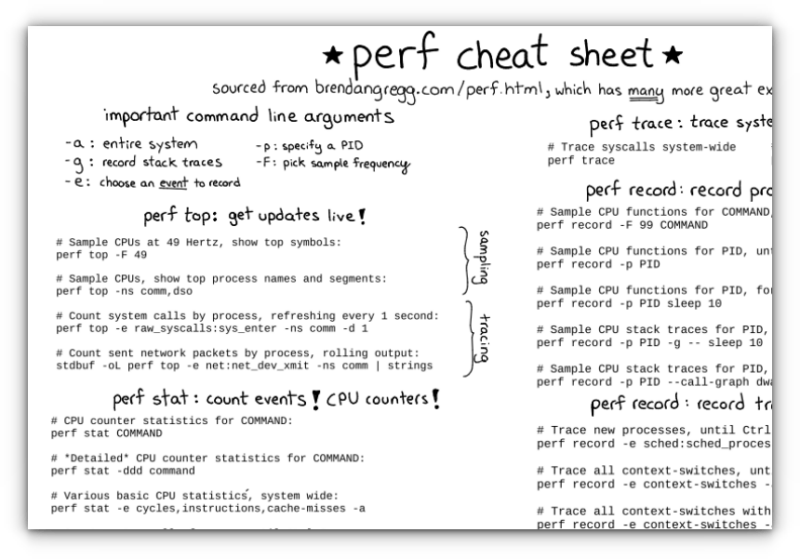 ★ perf cheat sheet ★
sourced from brendangregg.com/perf.html, which has many more great ex
important command line arguments
-a : entire system
-g : record stack traces
-e : choose an event to record
-p : specify a PID
-F : pick sample frequency
perf top: get updates live!
# Sample CPUs at 49 Hertz, show top symbols:
perf top -F 49
# Sample CPUs, show top process names and segments:
perf top -ns comm,dso
sampling
# Count system calls by process, refreshing every 1 second:
perf top -e raw_syscalls:sys_enter -ns comm -d 1
# Count sent network packets by process, rolling output:
stdbuf -oL perf top -e net:net_dev_xmit -ns comm | strings
tracing
perf stat: count events! CPU counters!
# CPU counter statistics for COMMAND:
perf stat COMMAND
# *Detailed* CPU counter statistics for COMMAND:
perf stat -ddd command
# Various basic CPU statistics, system wide:
perf stat -e cycles,instructions,cache-misses -a
perf trace: trace syste
# Trace syscalls system-wide
perf trace
perf record: record pro
# Sample CPU functions for COMMAND,
perf record -F 99 COMMAND
# Sample CPU functions for PID, unt
perf record -p PID
# Sample CPU functions for PID, fo
perf record -p PID sleep 10
# Sample CPU stack traces for PID,
perf record -p PID -g -- sleep 10
# Sample CPU stack traces for PID,
perf record -p PID --call-graph dwa
perf record: record tr
# Trace new processes, until Ctrl
perf record -e sched:sched_proces
# Trace all context-switches, unt
perf record -e context-switches -
# Trace all context-switches with
perf record -e context-switches -